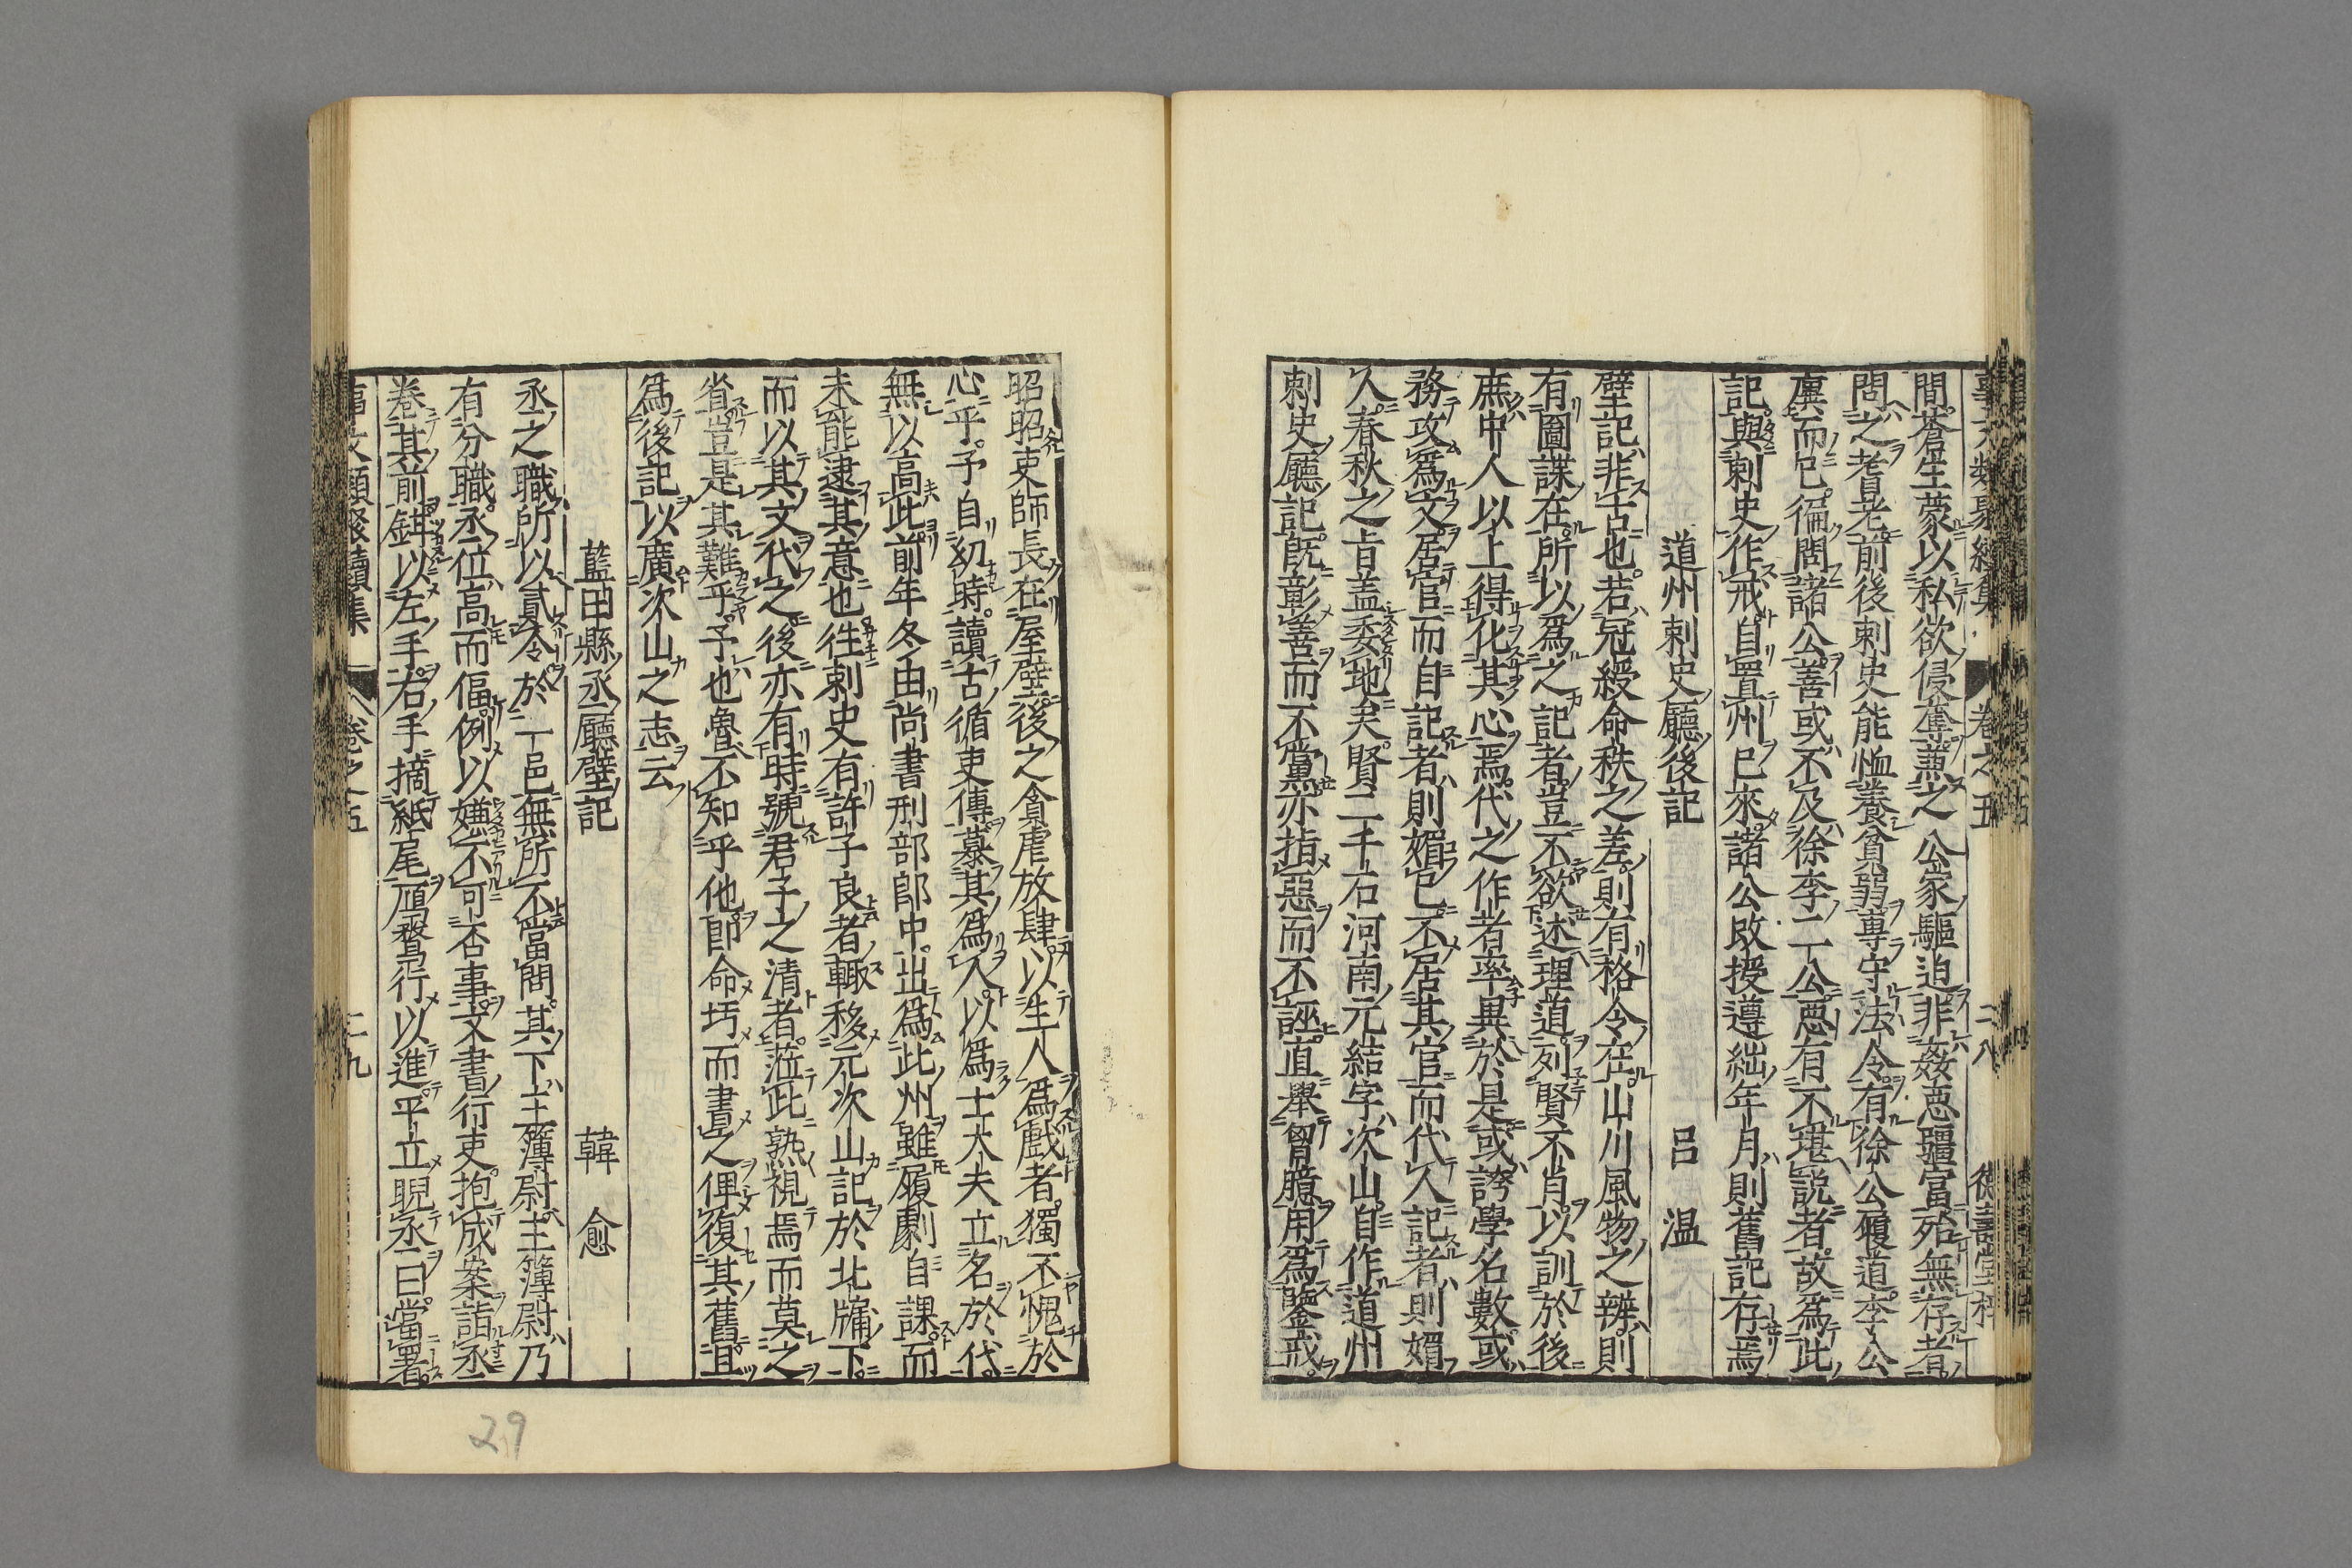 間蒼生蒙以私欲侵奪兼之公家驅迫非姦惡彊富殆無存者
問之耆老前後刺史能恤養貧弱專守法令有徐公履道李公
廙而已徧問諸公善或不及徐李二公惡有不堪説者故爲此
記與刺史作戒自置州已來諸公改授遵絀年月則舊記存焉
道州刺史廳後記 呂温
壁記非古也若冠綬命秩之差則有格令在山川風物之辨則
有圖諜在所以爲之記者豈不欲述理道列賢不肖以訓於後
庶中人以上得化其心焉代之作者率異於是或誇學名數或
務攻爲文居官而自記者則媚已不居其官而代人記者則媚
人春秋之旨盖委地矣賢二千石河南元結字次山自作道州
刺史廳記既彰善而不黨亦指惡而不誣直舉胷臆用爲鑒戒
昭昭吏師長在屋壁後之貪虐放肆以生人爲戲者獨不愧於
心乎予自幼時讀古循吏傳慕其爲人以爲士大夫立名於代
無以高此前年冬由尚書刑部郎中出爲此州雖履劇自課而
未能逮其意也徃刺史有許子良者輙移元次山記於北牖下
而以其文代之後亦有時號君子之清者蒞此熟視焉而莫之
省豈是其難乎予也魯不知乎他即命圬而書之俾復其舊且
爲後記以廣次山之志云
藍田縣丞廳壁記 韓愈
丞之職所以貳令於一邑無所不當問其下主簿尉主簿尉乃
有分職丞位高而偪例以嫌不可否事文書行吏抱成案詣丞
卷其前鉗以左手右手摘紙尾鴈鶩行以進平立睨丞曰當署
卷之五 二九
29